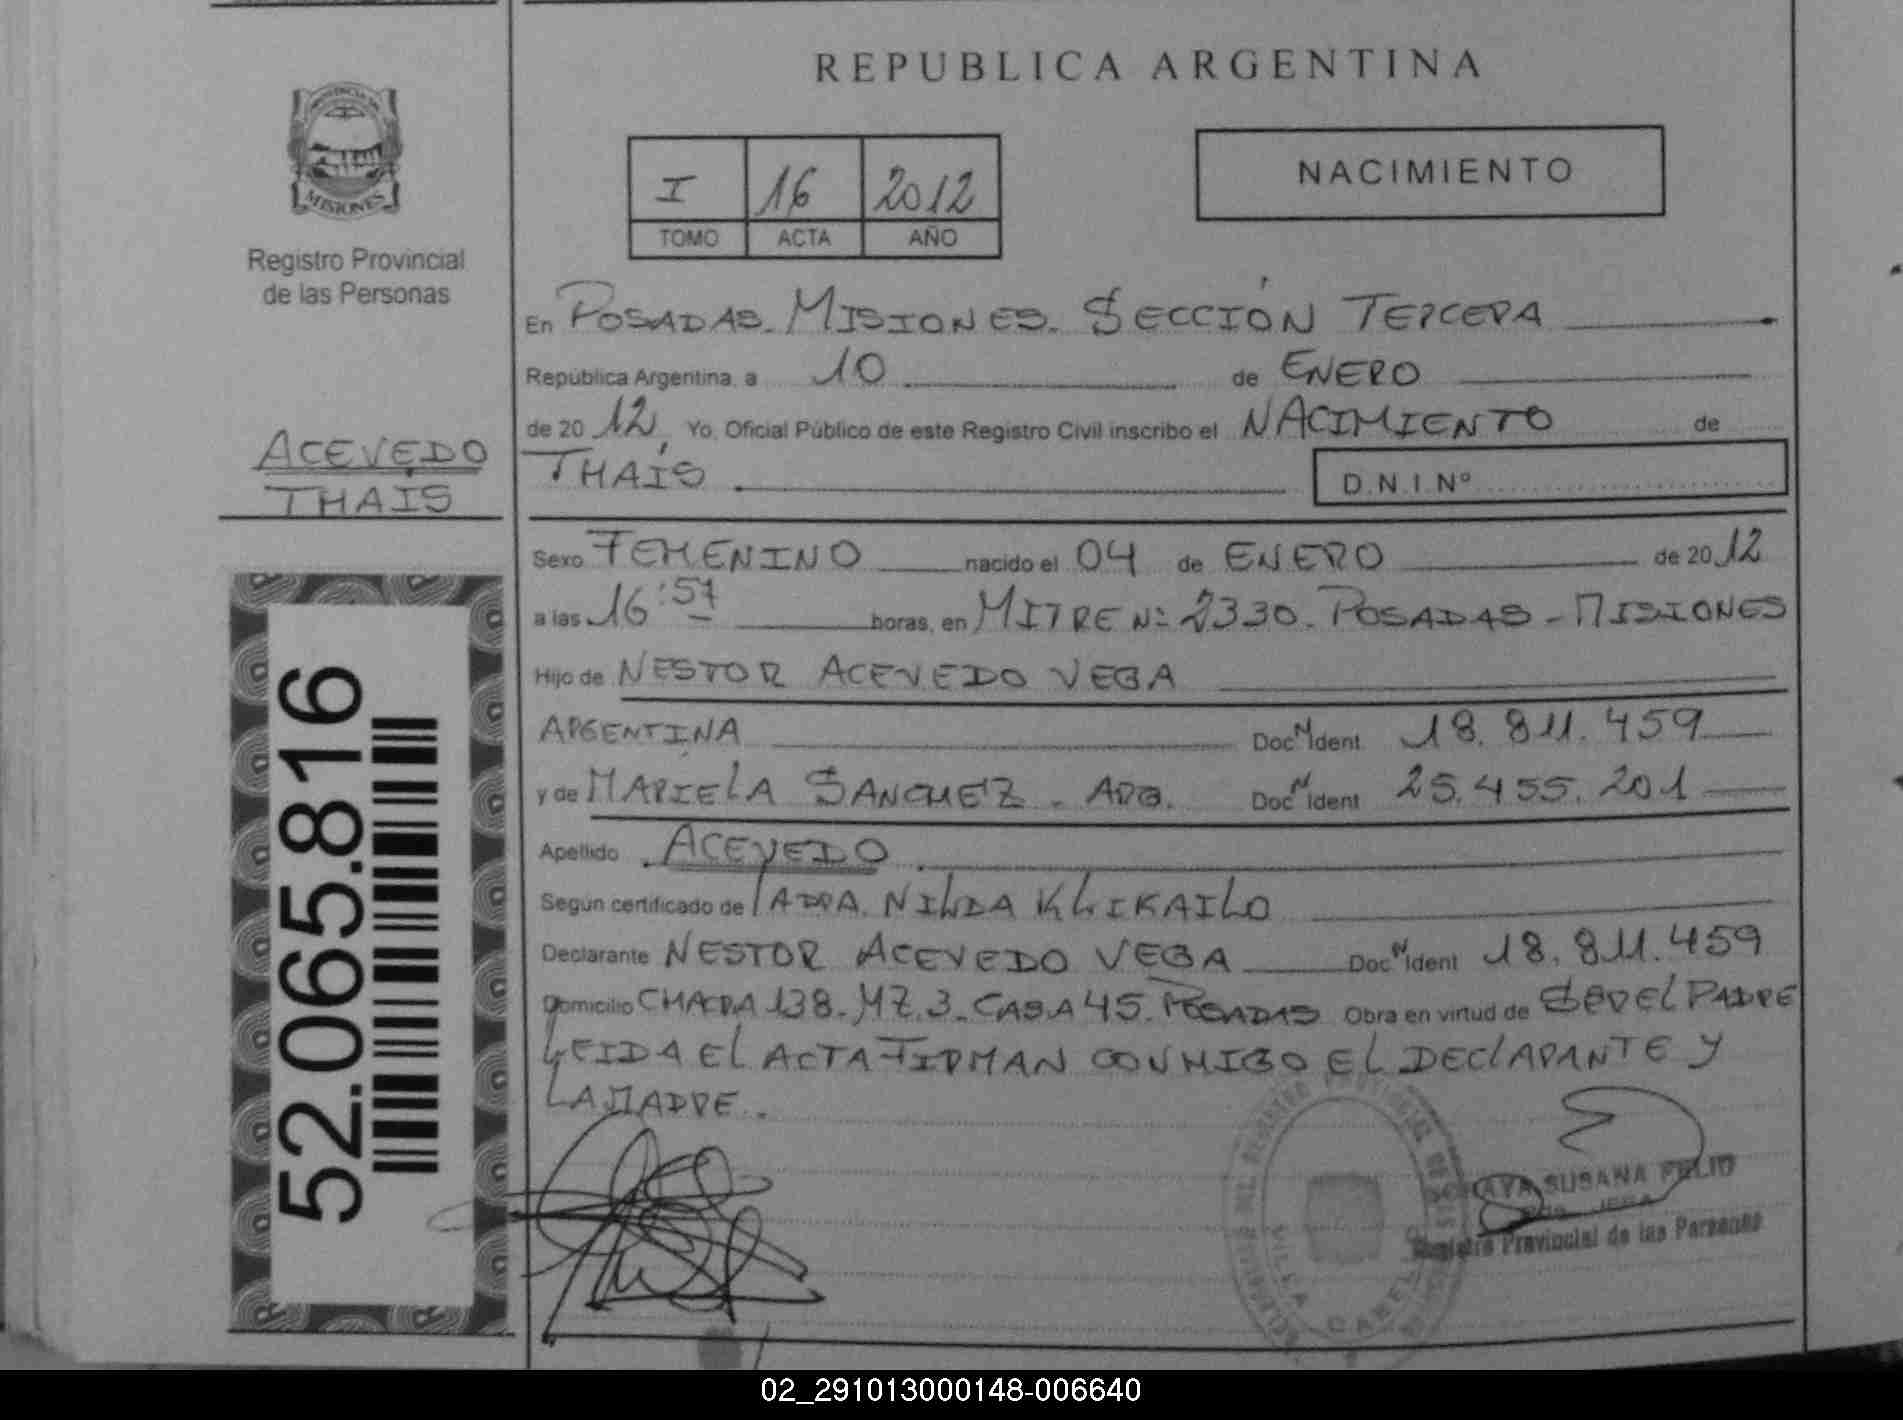 REPUBLICA ARGENTINA
PROVINCIA DE
MISIONES
Registro Provincial
de las Personas
I 16 2012
TOMO ACTA AÑO
NACIMIENTO
En POSADAS. MISIONES. SECCIÓN TERCERA
República Argentina, a 10 de ENERO
de 2012, Yo, Oficial Público de este Registro Civil inscribo el NACIMIENTO de
ACEVEDO
THAÍS
THAÍS D.N.I. Nº
Sexo FEMENINO nacido el 04 de ENERO de 2012
a las 16:57 horas, en MITRE Nº 2330. POSADAS - MISIONES
Hijo de NESTOR ACEVEDO VEGA
ARGENTINA Doc N Ident 18.811.459
y de MARIELA SANCHEZ . ARG. Doc N Ident 25.455.201
Apellido ACEVEDO
Según certificado de NILDA KLIKAILO
Declarante NESTOR ACEVEDO VEGA Doc N Ident 18.811.459
Domicilio CHACRA 138. MZ. 3. CASA 45. POSADAS Obra en virtud de SER EL PADRE
LEIDA EL ACTA FIRMAN CONMIGO EL DECLARANTE Y
LA MADRE.
52.065.816
SUSANA
Registro Provincial de las Personas
VILLA CABELLO
02_291013000148-006640